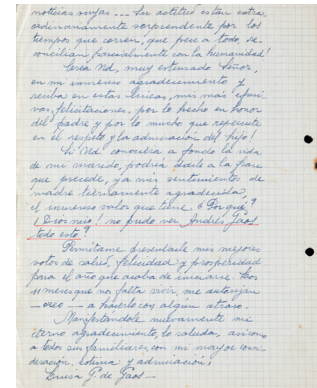 noticias suyas... Su actitud es tan extra
ordinariamente sorprendente por los
tiempos que corren, que pese a todo, se
concilian parcialmente con la humanidad!
Crea Ud, muy estimado Señor,
en mi inmenso agradecimiento y
reciba en estas líneas, mis más efusi
vas felicitaciones, por lo hecho en honor
del padre y por lo mucho que repercute
en el respeto y la admiración del hijo!
Si Ud conociera a fondo la vida
de mi marido, podría darle a la frase
que precede, y a mis sentimientos de
madre tiernamente agradecida,
el inmenso valor que tiene ¿Por qué?
¡Dios mío! no pudo ver Andrés Gaos
todo esto?
Permítame presentarle mis mejores
votos de salud, felicidad y prosperidad
para el año que acaba de iniciarse. Los
11 meses que nos falta vivir, me autorizan
— creo — a hacerlo con algún atraso.
Manifestándole nuevamente mi
eterno agradecimiento, lo saludo, asi como
a todos sus familiares, con mi mayor consi
deración, estima y admiración
Luisa G. de Gaos —